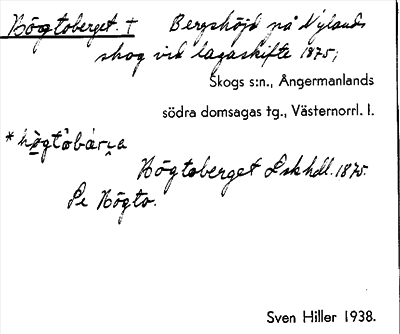 Högtoberget. † Bergshöjd på Nylands
skog vid lagaskifte 1875;
Skogs s:n., Ångermanlands
södra domsagas tg., Västernorrl. l.
* hògtòbár̯a
Högtoberget Lskhdl. 1875.
Se Högto.
Sven Hiller 1938.